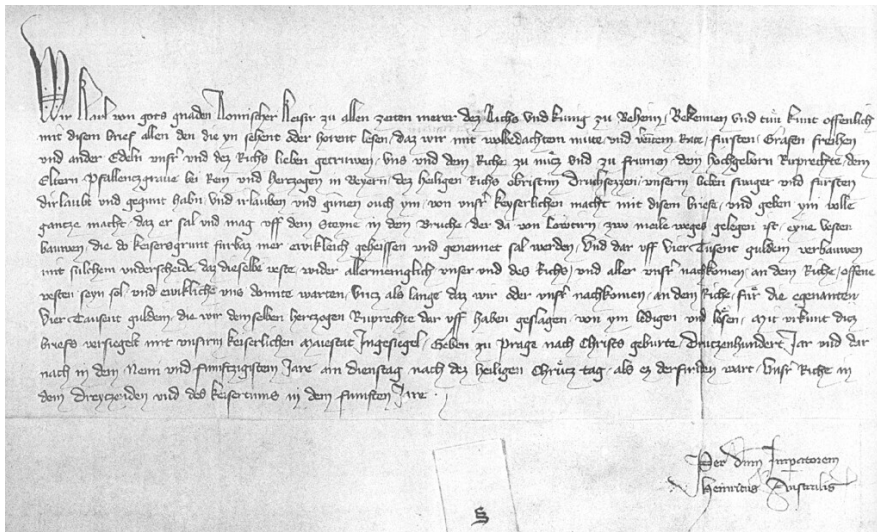 Wir Karl von gots gnaden Romischer Keisir zu allen zeiten merer dez Richs und kunig zu Beheim, Bekennen und tun kunt offenlich
mit disem brief allen den die yn sehent oder horent lesen, daz wir mit wolbedachtem mute und Rate, fursten, Grafen freihen
und ander Edeln unsr und dez Richs lieben getruwen, uns und dem Riche zu nucz und zu frumen dem hochgeborn Ruprechte dem
Eltern Pfallenczgrave bei Rein und herczogen in Beyern, dez heiligen Richs obristem Druchsezzen, unserm lieben swager und fursten
dirlaubt und gegunt habn, und irlauben und gunnen ouch ym, von unsr keyserlichen macht mit disem briefe, und geben ym volle
gantze macht, daz er sal und mag uff dem Steyne in dem Bruche, der da von Lowturn zwo meile weges gelegen ist, eyne vesten
bauwen, die do keisersgrunt furbaz mer ewikleich geheissen und genennet sal werden, Und dar uff Vier Tusent guldein verbauwen
mit sulchem underscheide, daz dieselbe veste, wider allermeniglich unser und des Richs, und aller unsr nachkomen, an dem Riche, offene
vesten seyn sol, und ewikliche uns domite warten, Uncz als lange daz wir oder unsr nachkomen, an dem Riche, fur die egenanten
Vier Tausent guldein, die wir demselben herczogen Ruprechte dar uff haben geslagen, von ym ledigen und losen, Mit urkunt dicz
briefs versigelt mit unsrm keiserlichen Maiestat Ingesiegel, Geben zu Prage nach Christs geburte, Druczenhundert Jar und dar
nach in dem Neun und funfczigistem Jare, am dienstag, nach dez heiligen Chrucz tag, als ez derfunden wart, Unsr Riche in
dem Dreyczenden und des keisertums in dem funften Jare.
Per dnm Imperatorem
Heinricus Australis